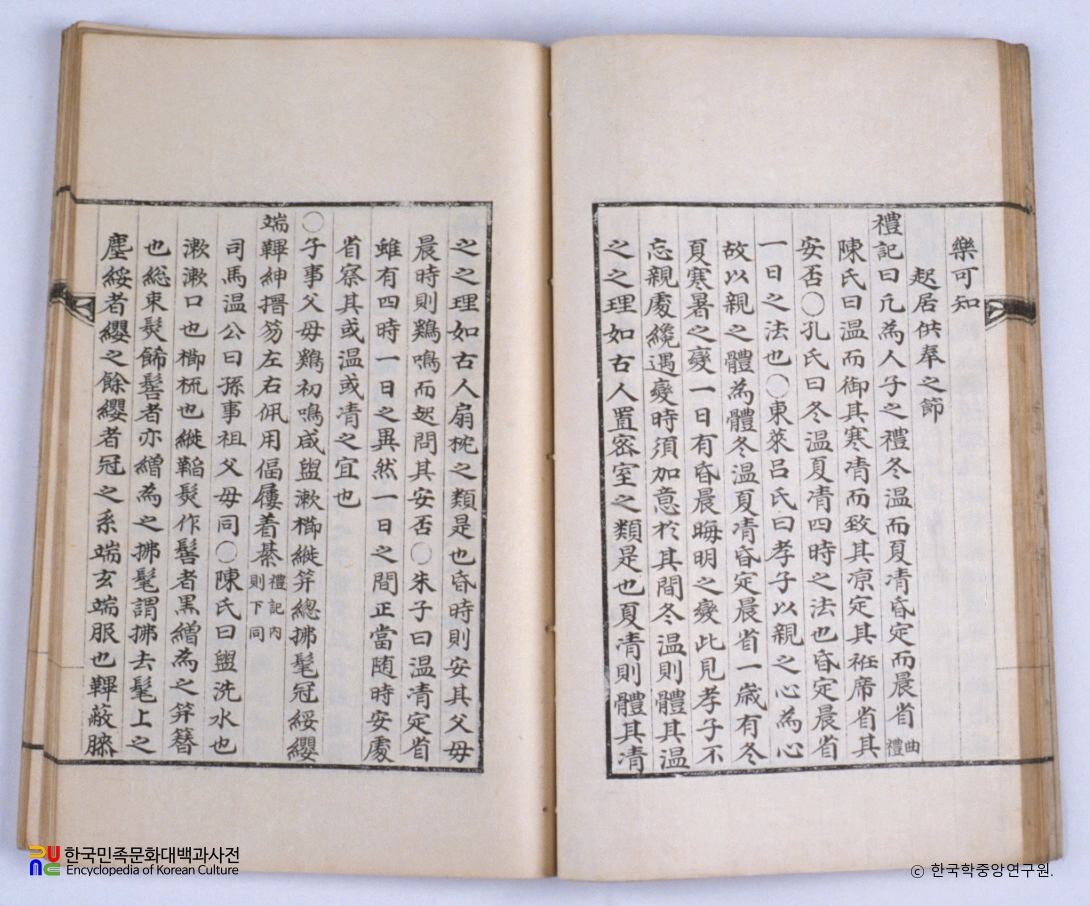 樂可知
起居供奉之節
禮記曰凢為人子之禮冬溫而夏凊昏定而晨省曲禮
陳氏曰溫而御其寒凊而致其凉定其袵席省其
安否〇孔氏曰冬溫夏凊四時之法也昏定晨省
一日之法也〇東萊呂氏曰孝子以親之心為心
故以親之體為體冬溫夏凊昏定晨省一歲有冬
夏寒暑之變一日有昏晨晦明之變此見孝子不
忘親處纔遇變時須加意於其間冬溫則體其溫
之之理如古人置密室之類是也夏凊則體其凊
之之理如古人扇枕之類是也昏時則安其父母
晨時則鷄鳴而起問其安否〇朱子曰溫凊定省
雖有四時一日之異然一日之間正當随時安處
省察其或溫或凊之宜也
〇子事父母鷄初鳴咸盥漱櫛縰笄總拂髦冠緌纓
端韠紳搢笏左右佩用偪屨着綦禮記內則下同
司馬溫公曰孫事祖父母同〇陳氏曰盥洗水也
漱漱口也櫛梳也縰韜髮作髻者黑繒為之笄簪
也総束髮飾髻者亦繒為之拂髦謂拂去髦上之
塵緌者纓之餘纓者冠之系端玄端服也韠蔽膝
한국민족문화대백과사전
Encyclopedia of Korean Culture
© 한국학중앙연구원.